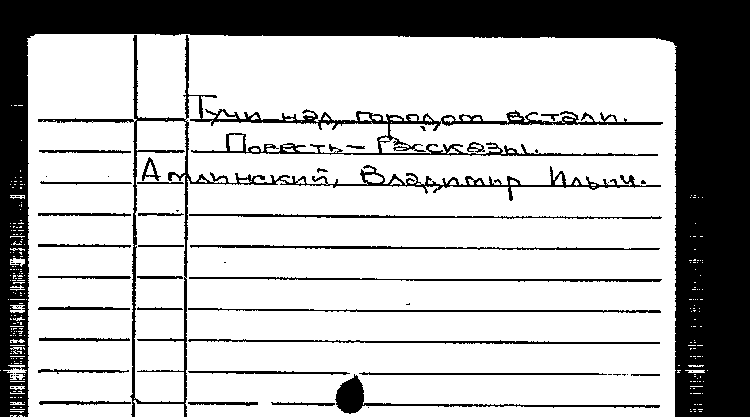 Тучи над городом встали.
Повесть - Рассказы.
Амлинский, Владимир Ильич.